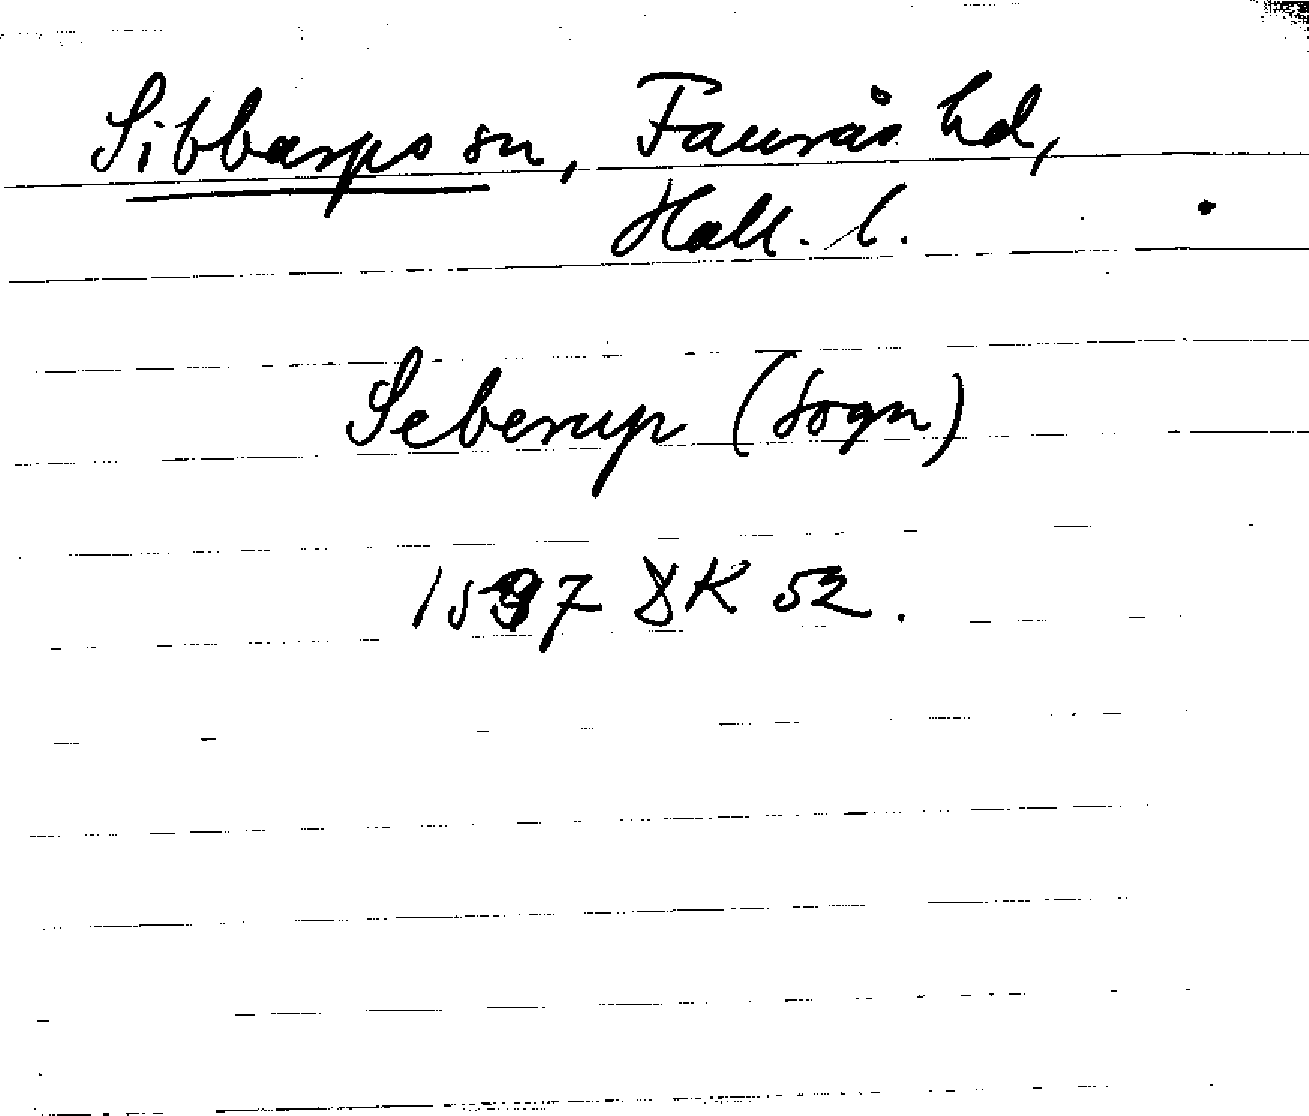 Sibbarps sn, Faurås hd,
Hall. l.
Seberup (Sogn)
DK 52.